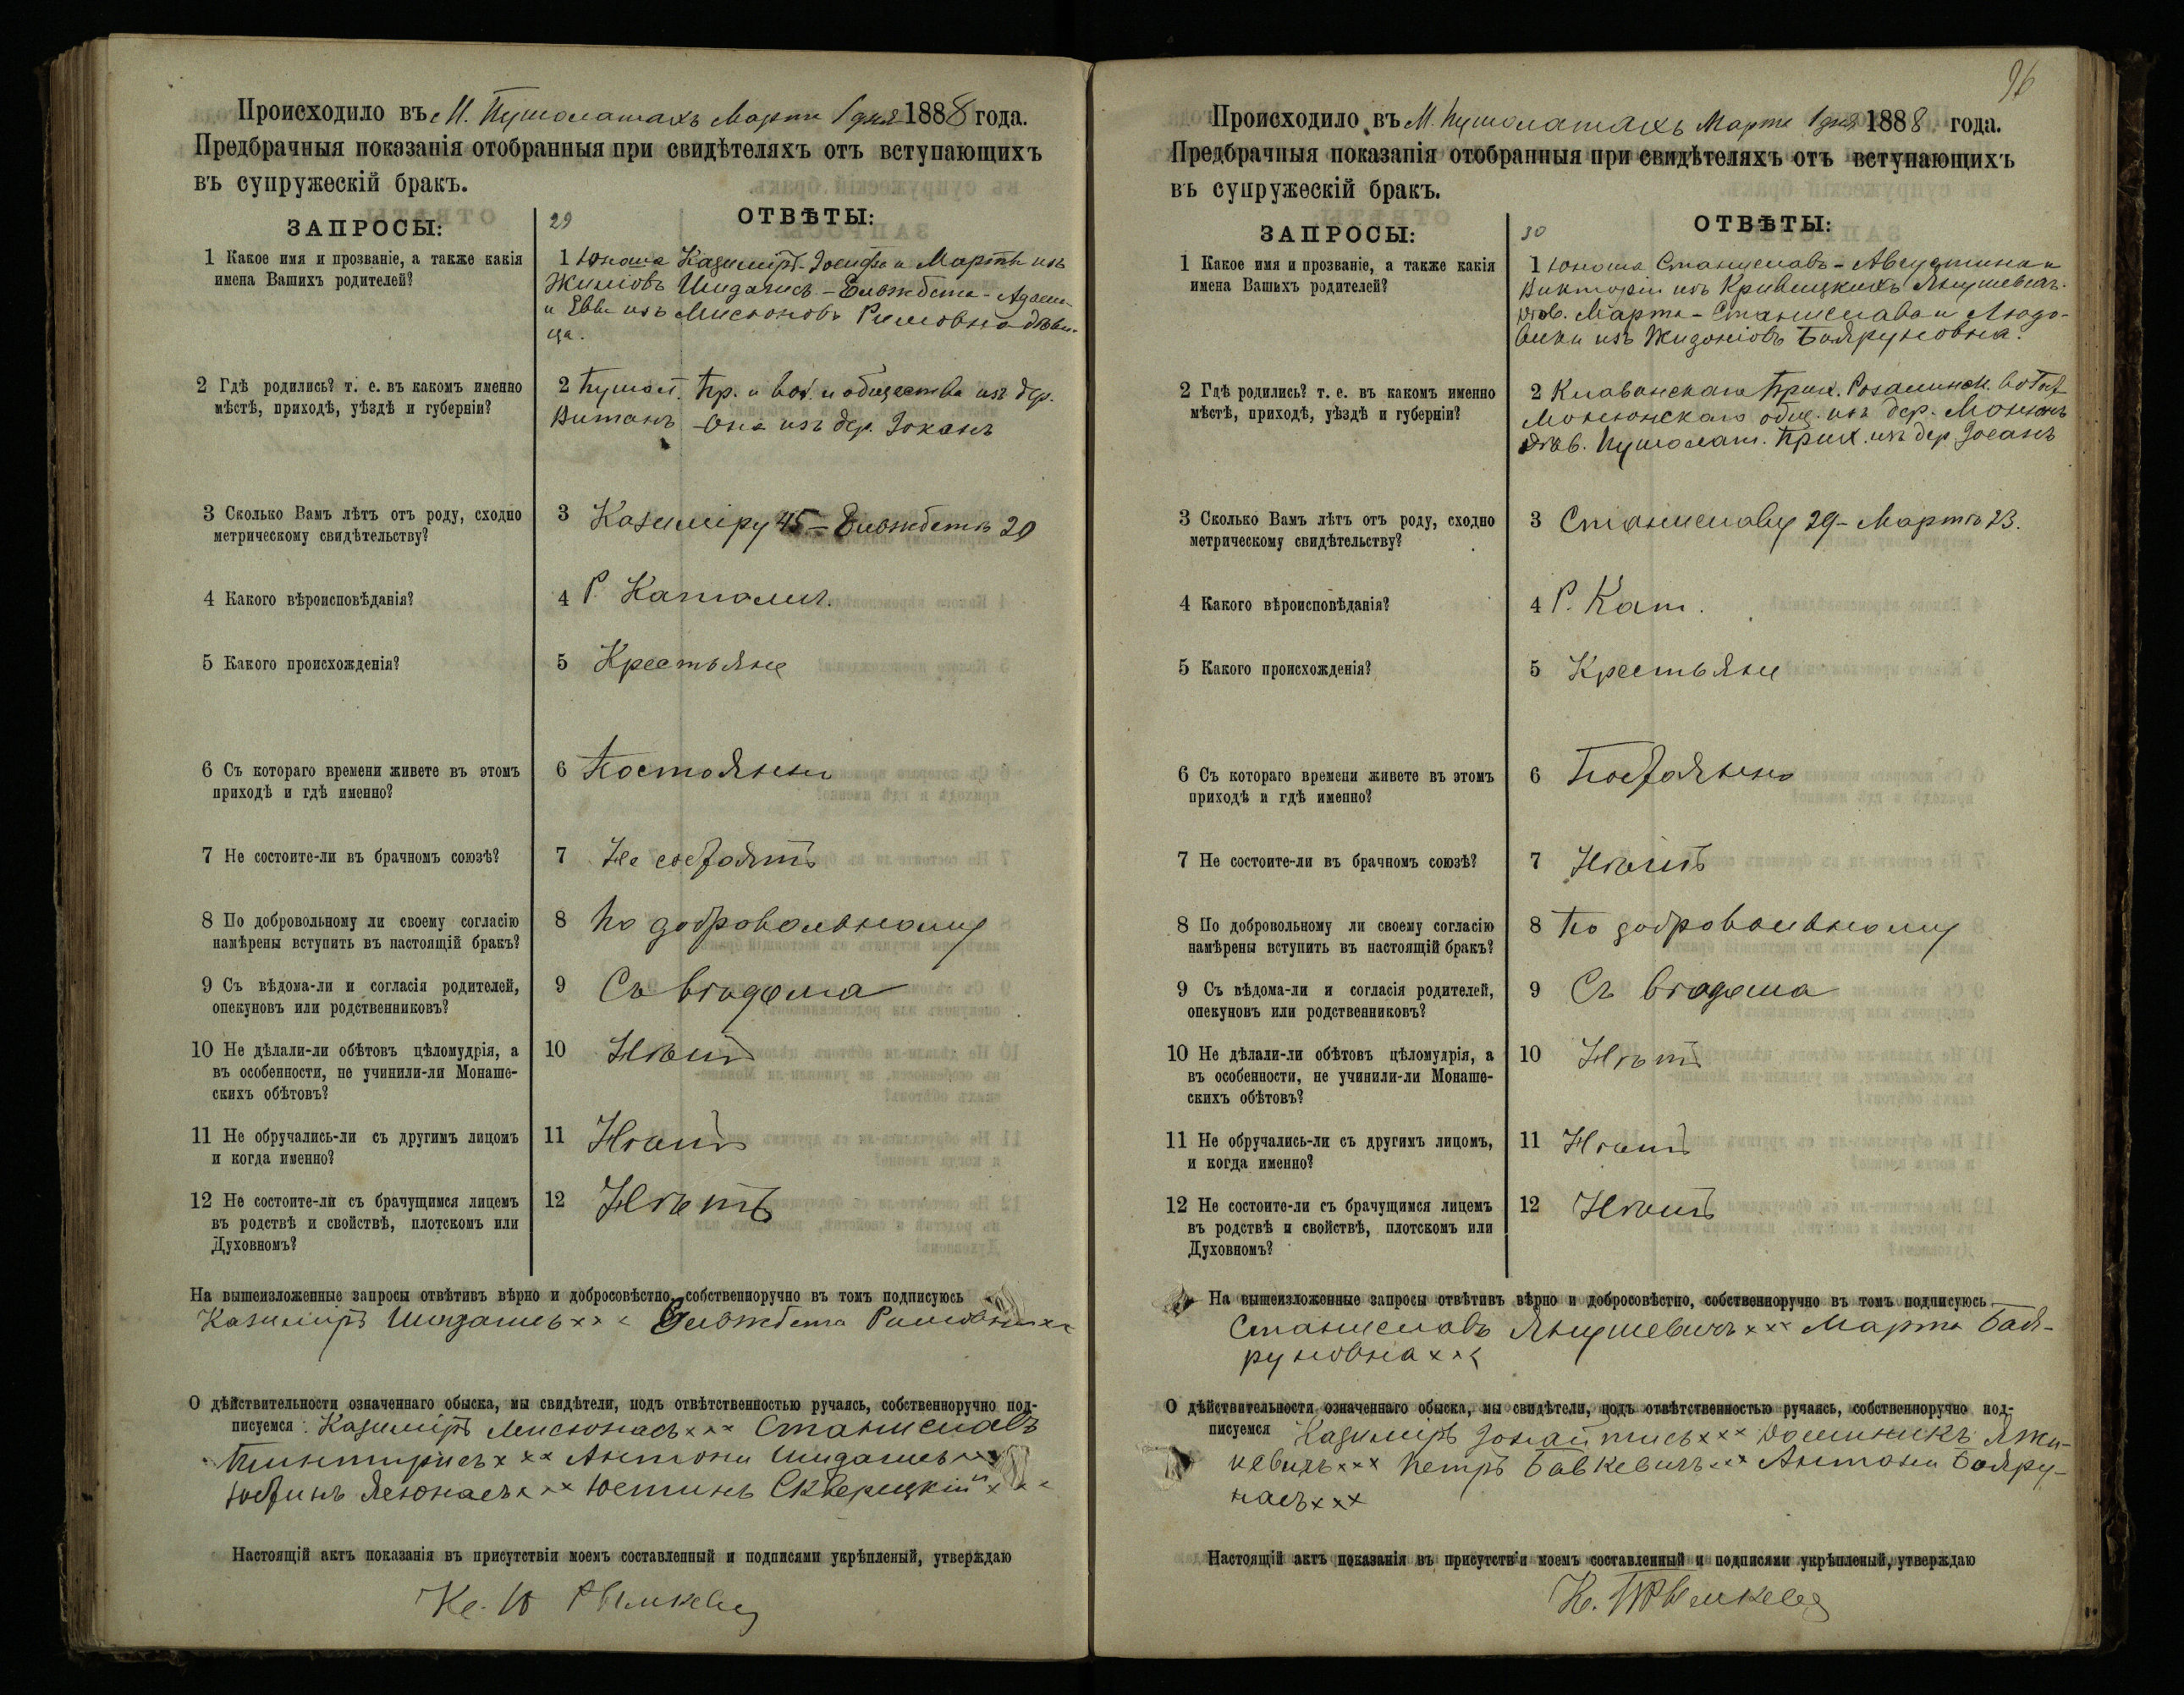 Происходило въ М. Пушолатахъ Марта 1 дня 1888 года.
Предбрачныя показанія отобранныя при свидѣтеляхъ отъ вступающихъ
въ супружескій бракъ.
ЗАПРОСЫ:
29
ОТВѢТЫ:
1 Какое имя и прозваніе, а также какія
имена Вашихъ родителей?
1 Юноша Казиміръ Іосифа и Марты изъ
Шидагисъ - Ельжбета - Адама
и Евы изъ Мисюновъ Римовна дѣви-
ца.
2 Гдѣ родились? т. е. въ какомъ именно
мѣстѣ, приходѣ, уѣздѣ и губерніи?
2 Пушол. Пр. и вол. и общества изъ дер.
Витанъ - Она изъ дер.
3 Сколько Вамъ лѣтъ отъ роду, сходно
метрическому свидѣтельству?
3 Казиміру 45 - Ельжбетѣ 20
4 Какого вѣроисповѣданія?
4 Р. Католич.
5 Какого происхожденія?
5 Крестьяне
6 Съ котораго времени живете въ этомъ
приходѣ и гдѣ именно?
6 Постоянно
7 Не состоите-ли въ брачномъ союзѣ?
7 Не состоятъ
8 По добровольному ли своему согласію
намѣрены вступить въ настоящій бракъ?
8 По добровольному
9 Съ вѣдома-ли и согласія родителей,
опекуновъ или родственниковъ?
9 Съ вѣдома
10 Не дѣлали-ли обѣтовъ цѣломудрія, а
въ особенности, не учинили-ли Монаше-
скихъ обѣтовъ?
10 Нѣтъ
11 Не обручались-ли съ другимъ лицомъ
и когда именно?
11 Нѣтъ
12 Не состоите-ли съ брачущимся лицемъ
въ родствѣ и свойствѣ, плотскомъ или
Духовномъ?
12 Нѣтъ
На вышеизложенные запросы отвѣтивъ вѣрно и добросовѣстно, собственноручно въ томъ подписуюсь
Казиміръ Шидагисъ××× Ельжбета Римовна×××
О дѣйствительности означеннаго обыска, мы свидѣтели, подъ отвѣтственностью ручаясь, собственноручно под-
писуемся: Казиміръ Мисюнасъ××× Станиславъ
××× Антони Шидагисъ×××
Юстинъ Ясюнасъ××× Юстинъ Скверецкій×××
Настоящій актъ показанія въ присутствіи моемъ составленный и подписями укрѣпленый, утверждаю
Кс.
96
Происходило въ М. Пушолатахъ Марта 1 дня 1888 года.
Предбрачныя показанія отобранныя при свидѣтеляхъ отъ вступающихъ
въ супружескій бракъ.
ЗАПРОСЫ:
30
ОТВѢТЫ:
1 Какое имя и прозваніе, а также какія
имена Вашихъ родителей?
1 Юноша Станиславъ - Августина и
Викторіи изъ Кривицкихъ Янушевичъ.
дѣв. Марта - Станислава и Людо-
вики изъ Жидонісвъ Бояруновна.
2 Гдѣ родились? т. е. въ какомъ именно
мѣстѣ, приходѣ, уѣздѣ и губерніи?
2 Клаванскаго Прих. Розалинск. вол.
общ. изъ дер.
дѣв. Пушолат. Прих. изъ дер.
3 Сколько Вамъ лѣтъ отъ роду, сходно
метрическому свидѣтельству?
3 Станиславу 29 - Мартѣ 23.
4 Какого вѣроисповѣданія?
4 Р. Кат.
5 Какого происхожденія?
5 Крестьяне
6 Съ котораго времени живете въ этомъ
приходѣ и гдѣ именно?
6 Постоянно
7 Не состоите-ли въ брачномъ союзѣ?
7 Нѣтъ
8 По добровольному ли своему согласію
намѣрены вступить въ настоящій бракъ?
8 По добровольному
9 Съ вѣдома-ли и согласія родителей,
опекуновъ или родственниковъ?
9 Съ вѣдома
10 Не дѣлали-ли обѣтовъ цѣломудрія, а
въ особенности, не учинили-ли Монаше-
скихъ обѣтовъ?
10 Нѣтъ
11 Не обручались-ли съ другимъ лицомъ,
и когда именно?
11 Нѣтъ
12 Не состоите-ли съ брачущимся лицемъ
въ родствѣ и свойствѣ, плотскомъ или
Духовномъ?
12 Нѣтъ
На вышеизложенные запросы отвѣтивъ вѣрно и добросовѣстно, собственноручно въ томъ подписуюсь
Станиславъ Янушевичъ××× Марта Бая-
руновна×××
О дѣйствительности означеннаго обыска, мы свидѣтели, подъ отвѣтственностью ручаясь, собственноручно под-
писуемся Казиміръ ××× Доминикъ Яжи-
кевичъ××× Петръ Бавкевичъ××× Антони Бояру-
насъ×××
Настоящій актъ показанія въ присутствіи моемъ составленный и подписями укрѣпленый, утверждаю